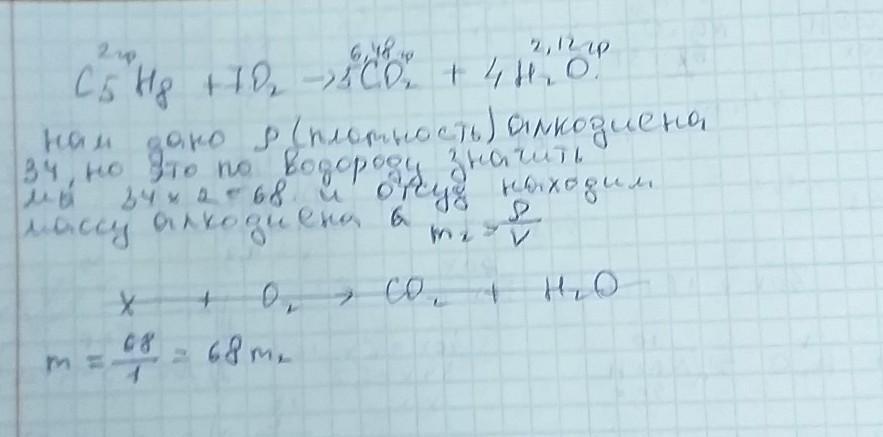 2 гр 6,48 гр 2,12 гр
C5H8 + 7O2 → 5CO2 + 4H2O
нам дано ρ (плотность) алкодиена
34, но это по водороду значить
мы 34 × 2 = 68 и отсуд находим
массу алкодиена m = ρ/V
x + O2 → CO2 + H2O
m = 68/1 = 68